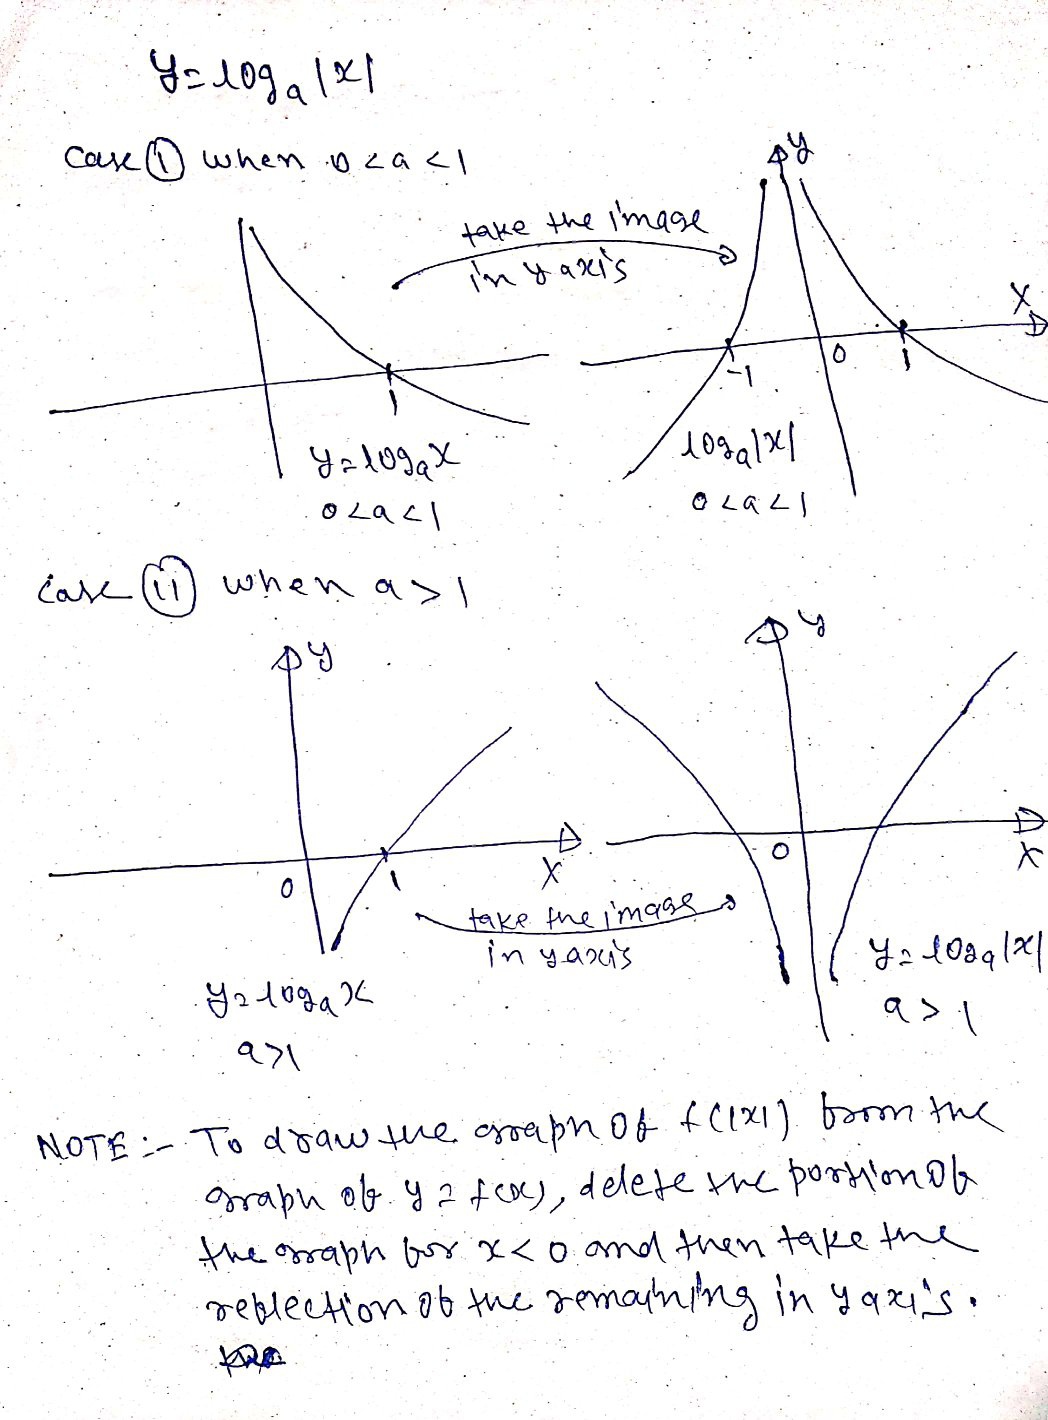 y=logₐ|x|
Case (i) when 0<a<1
y
take the image
in y axis
X
-1
0
1
1
y=logₐx
logₐ|x|
0<a<1
0<a<1
Case (ii) when a>1
y
y
0
1
X
0
X
take the image
in y axis
y=logₐ|x|
y=logₐx
a>1
a>1
NOTE :- To draw the graph of f(|x|) from the
graph of y = f(x), delete the portion of
the graph for x<0 and then take the
reflection of the remaining in y axis.